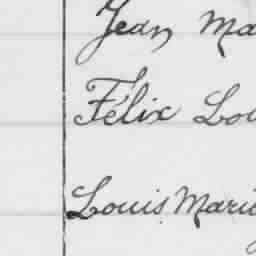 Jean Ma
Félix Lou
Louis Marie